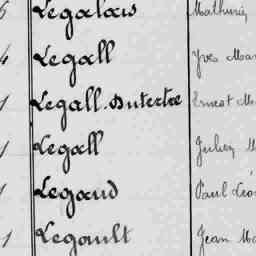 Legalais Mathurin
Legall Yves Mar
Legall Dutertre Ernest M
Legall Julien M
Legaud Paul Léo
Legault Jean Ma